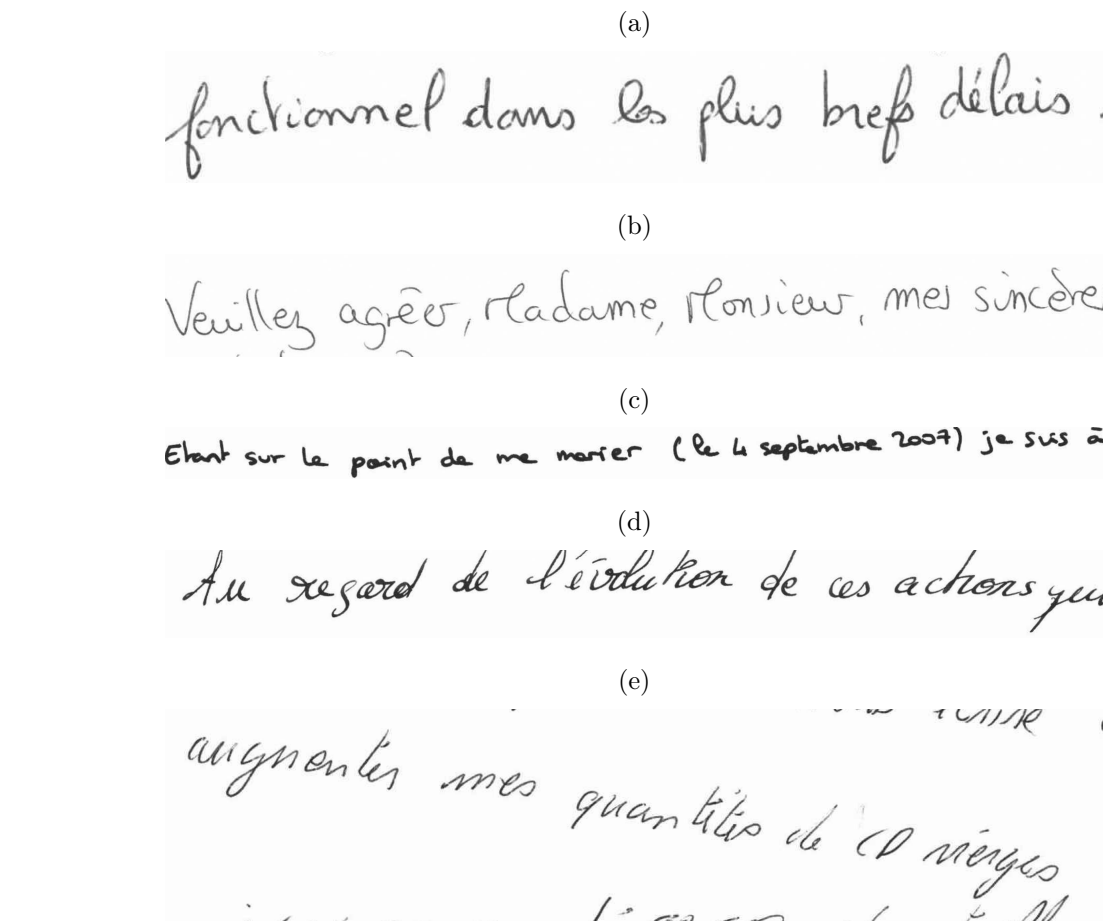 (a)
fonctionnel dans les plus brefs délais .
(b)
Veuillez agréer, Madame, Monsieur, mes sincère
(c)
Etant sur le point de me marier (le 4 septembre 2007) je suis à
(d)
Au regard de l'évolution de ces actions
(e)
augmenter mes quantités de CD vierges